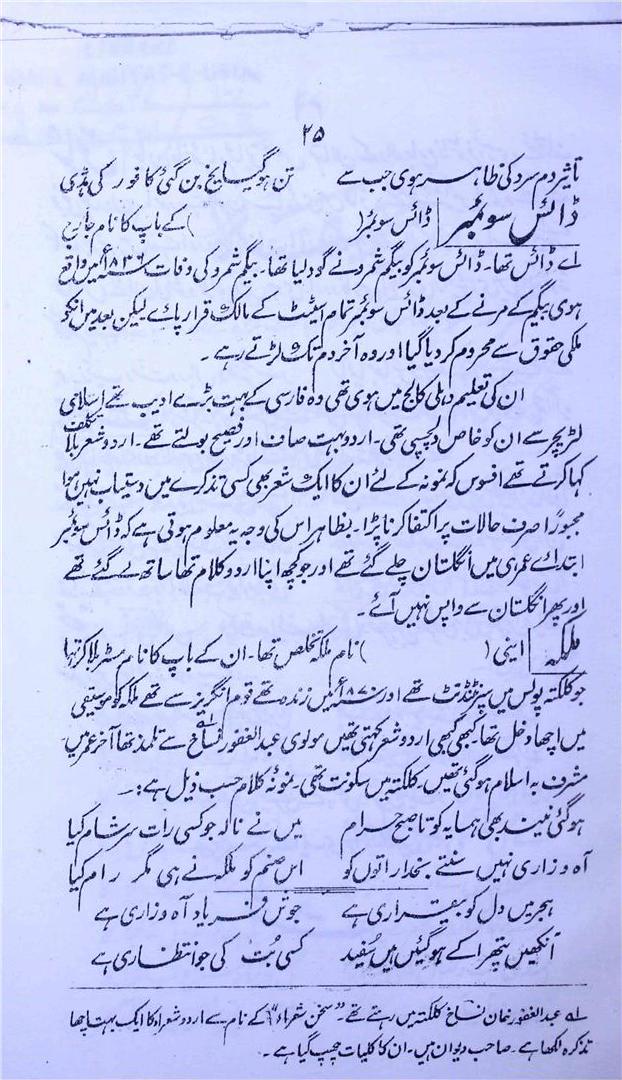 ۲۵
تاثیر دم سرد کی ظاہر ہوی جب سے تن ہو گیا یخ بن گئی کافور کی ہڈی
ڈائس سومبر ڈائس سومبر ( ) کے باپ کا نام جان
اے ڈائس تھا۔ ڈائس سومبر کو بیگم شمرو نے گود لیا تھا۔ بیگم شمرو کی وفات ۱۸۳۶ء میں واقع
ہوی بیگم کے مرنے کے بعد ڈائس سومبر تمام سٹیٹ کے مالک قرار پاے لیکن بعد میں انکو
ملکی حقوق سے محروم کر دیا گیا اور وہ آخر دم تک لڑتے رہے ۔
ان کی تعلیم دہلی کالج میں ہوی تھی وہ فارسی کے بہت بڑے ادیب تھے اسلامی
لٹریچر سے ان کو خاص دلچسپی تھی۔ اردو بہت صاف اور فصیح بولتے تھے ۔ اردو شعر بلا تکلف
کہا کرتے تھے افسوس کہ نمونہ کے لئے ان کا ایک شعر بھی کسی تذکرے میں دستیاب نہیں ہوا
مجبوراً صرف حالات پر اکتفا کرنا پڑا۔ بظاہر اس کی وجہ یہ معلوم ہوتی ہے کہ ڈائس سومبر
ابتداے عمر ہی میں انگلستان چلے گئے تھے اور جو کچھ اپنا اردو کلام تھا ساتھ لے گئے تھے
اور پھر انگلستان سے واپس نہیں آئے۔
ملکہ اینی ( ) نام ملکہ تخلص تھا۔ ان کے باپ کا نام مسٹر بلاکر تہا
جو کلکتہ پولس میں سپرنٹنڈنٹ تھے اور ۱۸۷۰ء میں زندہ تھے قوم انگریز سے تھے ملکہ کو موسیقی
میں اچھا دخل تھا۔ کبھی کبھی اردو شعر کہتی تھیں مولوی عبدالغفور نساخ لہ سے تلمذ تھا آخر عمر میں
مشرف بہ اسلام ہو گئی تھیں۔ کلکتہ میں سکونت تھی۔ نمونہ کلام حسب ذیل ہے :۔
ہو گئی نیند بھی ہمسایہ کو تا صبح حرام میں نے نالہ جو کسی رات سر شام کیا
آہ و زاری نہیں سنتے بخدا راتوں کو اس صنم کو ملکہ نے ہی مگر رام کیا
ہجر میں دل کو بیقراری ہے جوش فریاد آہ و زاری ہے
آنکھیں پتھرا کے ہو گئیں ہیں سفید کسی بت کی جو انتظاری ہے
لہ عبدالغفور خان نساخ کلکتہ میں رہتے تھے۔ "سخن شعراء" کے نام سے اردو شعراء کا ایک بہت اچھا
تذکرہ لکھا ہے۔ صاحب دیوان ہیں۔ ان کا کلیات چھپ گیا ہے ۔